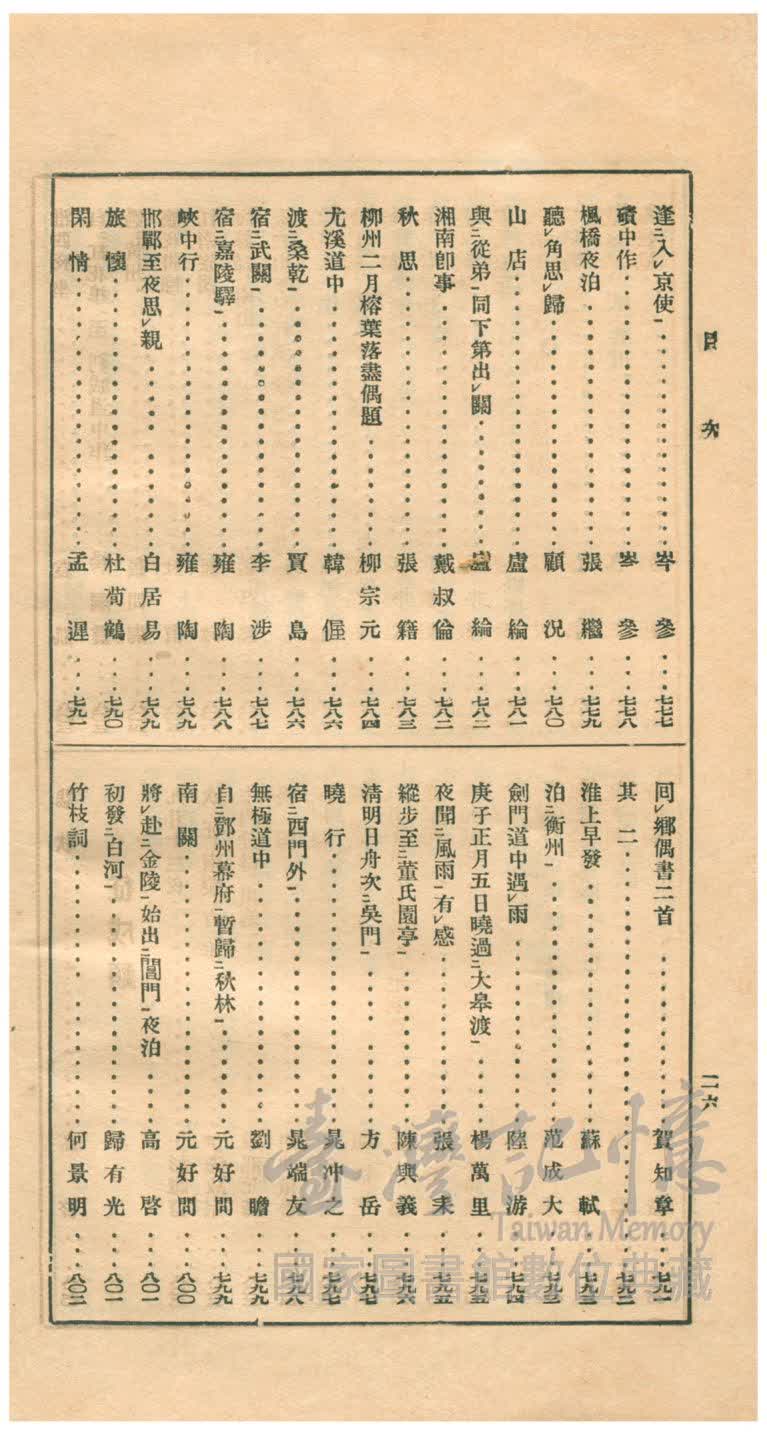 目次
二六
逢㆓入㆑京使㆒ 岑參 七七七
磧中作 岑參 七七八
楓橋夜泊 張繼 七七九
聽㆑角思㆑歸 顧況 七八〇
山店 盧綸 七八一
與㆓從弟㆒同下第出㆑關 盧綸 七八二
湘南卽事 戴叔倫 七八二
秋思 張籍 七八三
柳州二月榕葉落盡偶題 柳宗元 七八四
尤溪道中 韓偓 七八六
渡㆓桑乾㆒ 賈島 七八六
宿㆓武關㆒ 李涉 七八七
宿㆓嘉陵驛㆒ 雍陶 七八八
峽中行 雍陶 七八九
邯鄲至夜思㆑親 白居易 七八九
旅懷 杜荀鶴 七九〇
閑情 孟遲 七九一
囘㆑鄕偶書二首 賀知章 七九一
其二 七九二
淮上早發 蘇軾 七九三
泊㆓衡州㆒ 范成大 七九三
劍門道中遇㆑雨 陸游 七九四
庚子正月五日曉過㆓大皐渡㆒ 楊萬里 七九五
夜聞㆓風雨㆒有㆑感 張耒 七九五
縱步至㆓董氏園亭㆒ 陳與義 七九六
淸明日舟次㆓吳門㆒ 方岳 七九七
曉行 晁冲之 七九七
宿㆓西門外㆒ 晁端友 七九八
無極道中 劉瞻 七九九
自㆓鄧州幕府㆒暫歸㆓秋林㆒ 元好問 七九九
南關 元好問 八〇〇
將㆑赴㆓金陵㆒始出㆓閶門㆒夜泊 高啓 八〇一
初發㆓白河㆒ 歸有光 八〇一
竹枝詞 何景明 八〇二
臺灣記憶
Taiwan Memory
國家圖書館數位典藏